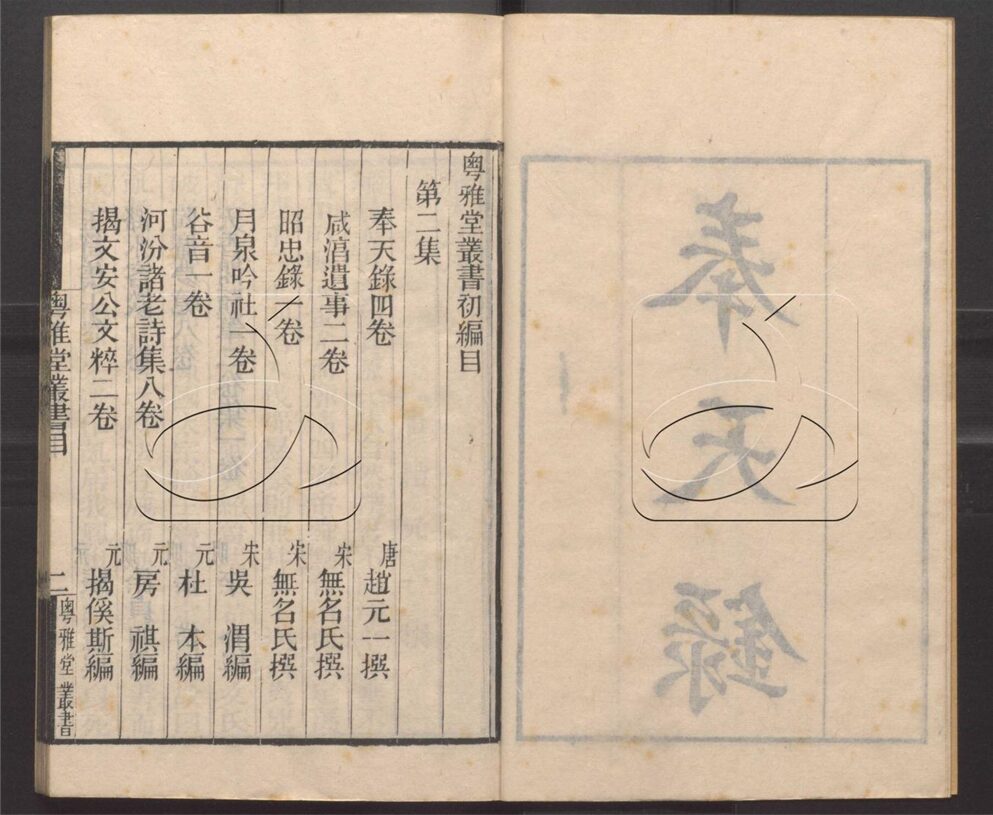 奉天錄
粵雅堂叢書初編目
第二集
奉天錄四卷 唐 趙元一撰
咸淳遺事二卷 宋 無名氏撰
昭忠錄一卷 宋 無名氏撰
月泉吟社一卷 宋 吳渭編
谷音一卷 元 杜本編
河汾諸老詩集八卷 元 房祺編
揭文安公文粹二卷 元 揭傒斯編
粵雅堂叢書目 二 粵雅堂叢書